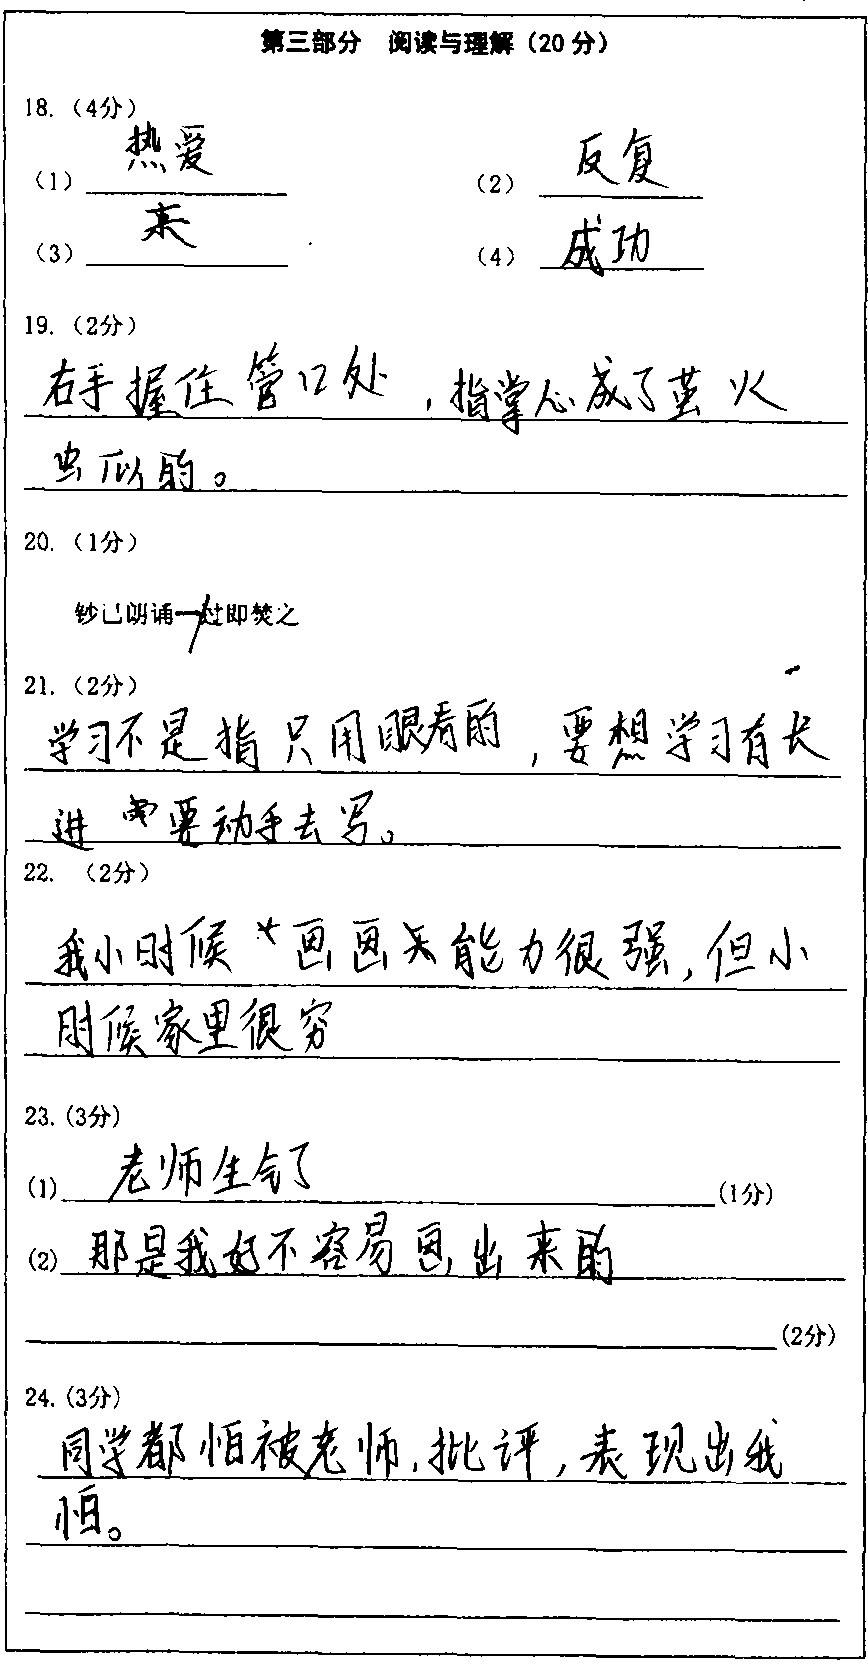 第三部分 阅读与理解（20分）
18.（4分）
（1）热爱 （2）反复
（3）来 （4）成功
19.（2分）
右手握住管口处，指掌心成了茧火
虫似的。
20.（1分）
钞已朗诵一/过即焚之
21.（2分）
学习不是指只用眼看的，要想学习有长
进 需要动手去写。
22.（2分）
我小时候画画天能力很强，但小
时候家里很穷
23.(3分)
(1) 老师生气了 (1分)
(2) 那是我好不容易画出来的
(2分)
24.(3分)
同学都怕被老师,批评，表现出我
怕。